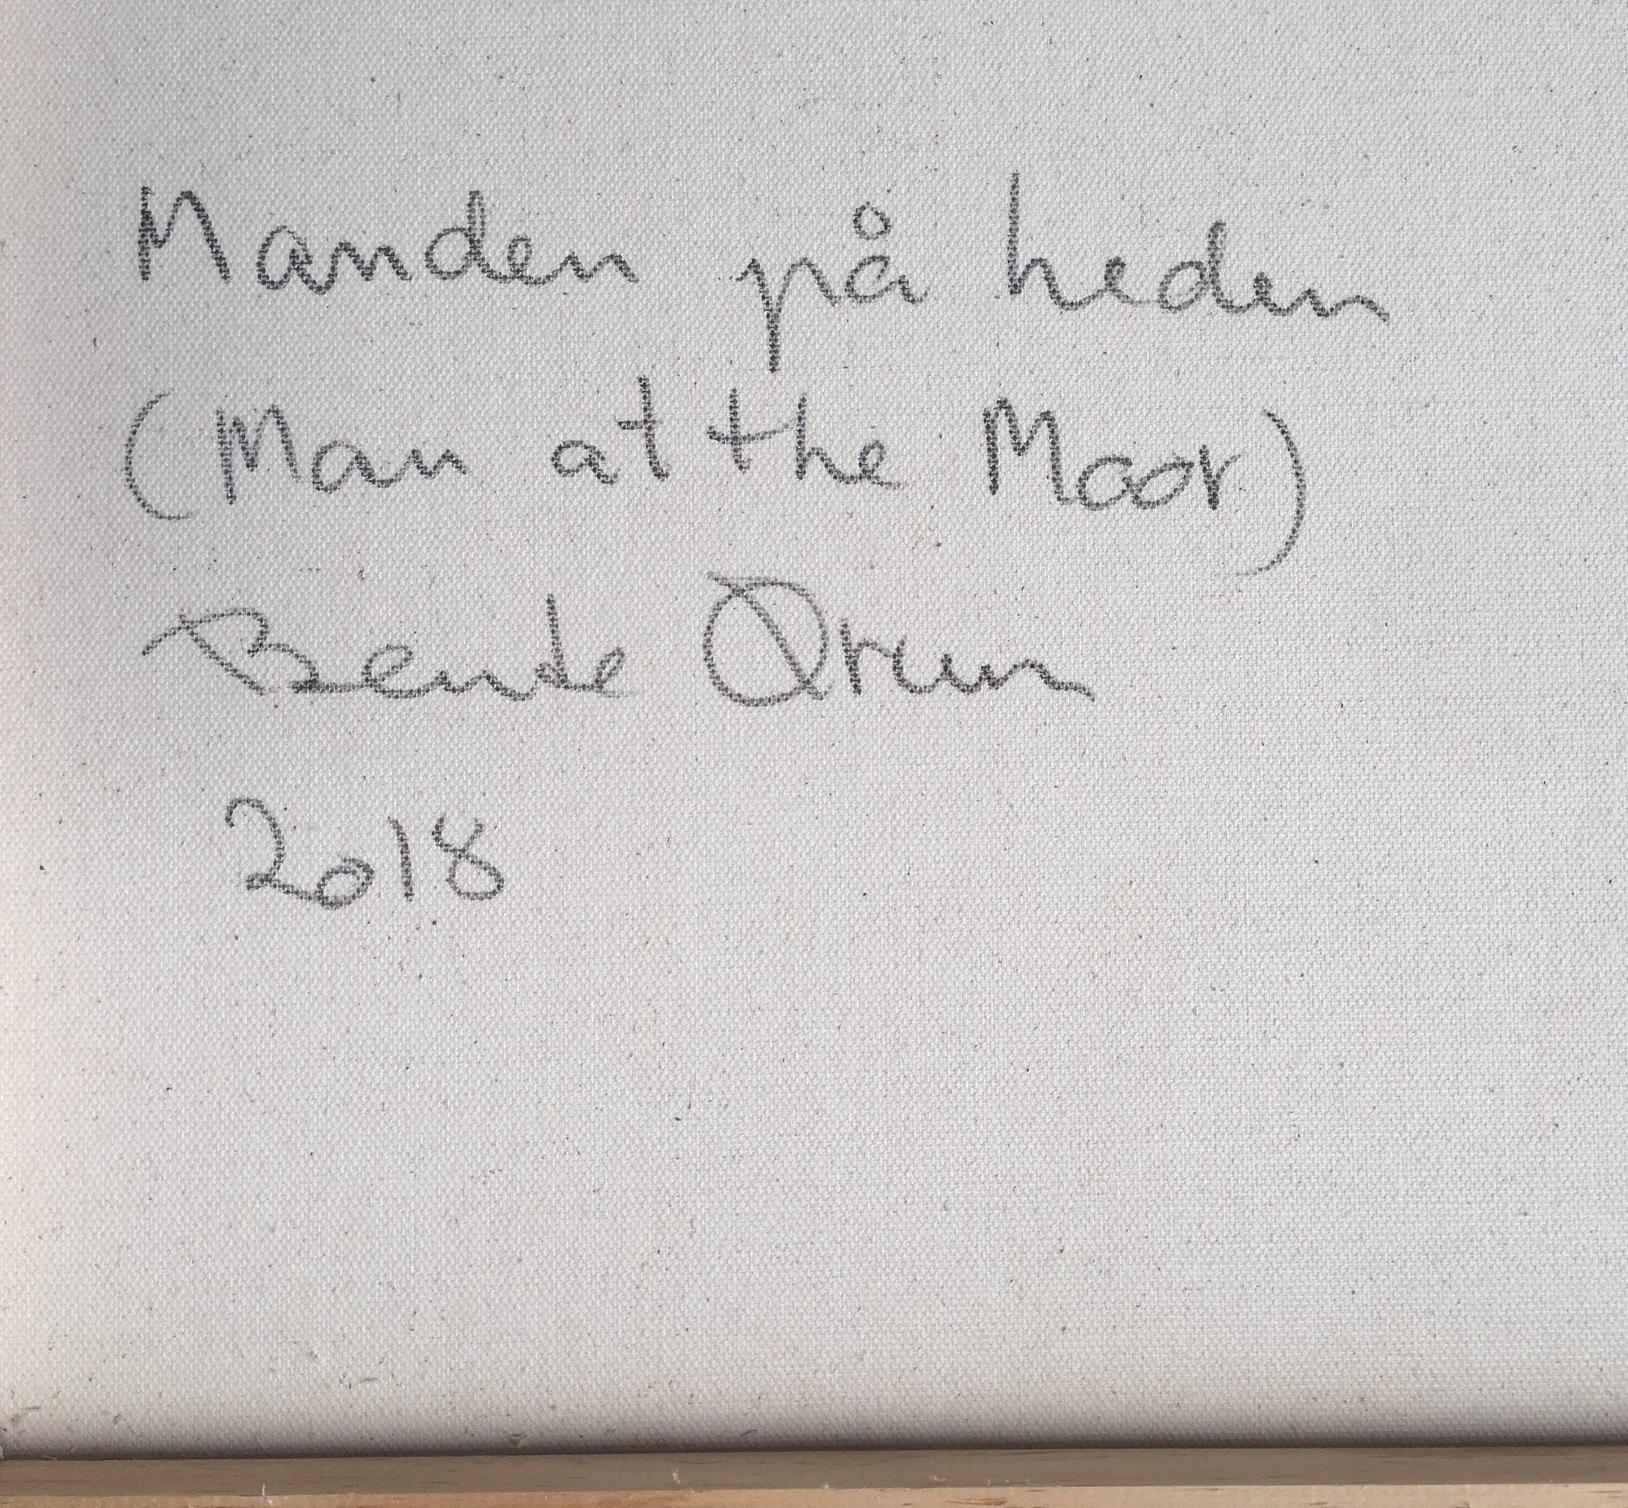 Manden på heden
(Man at the Moor)
Bente Ørum
2018